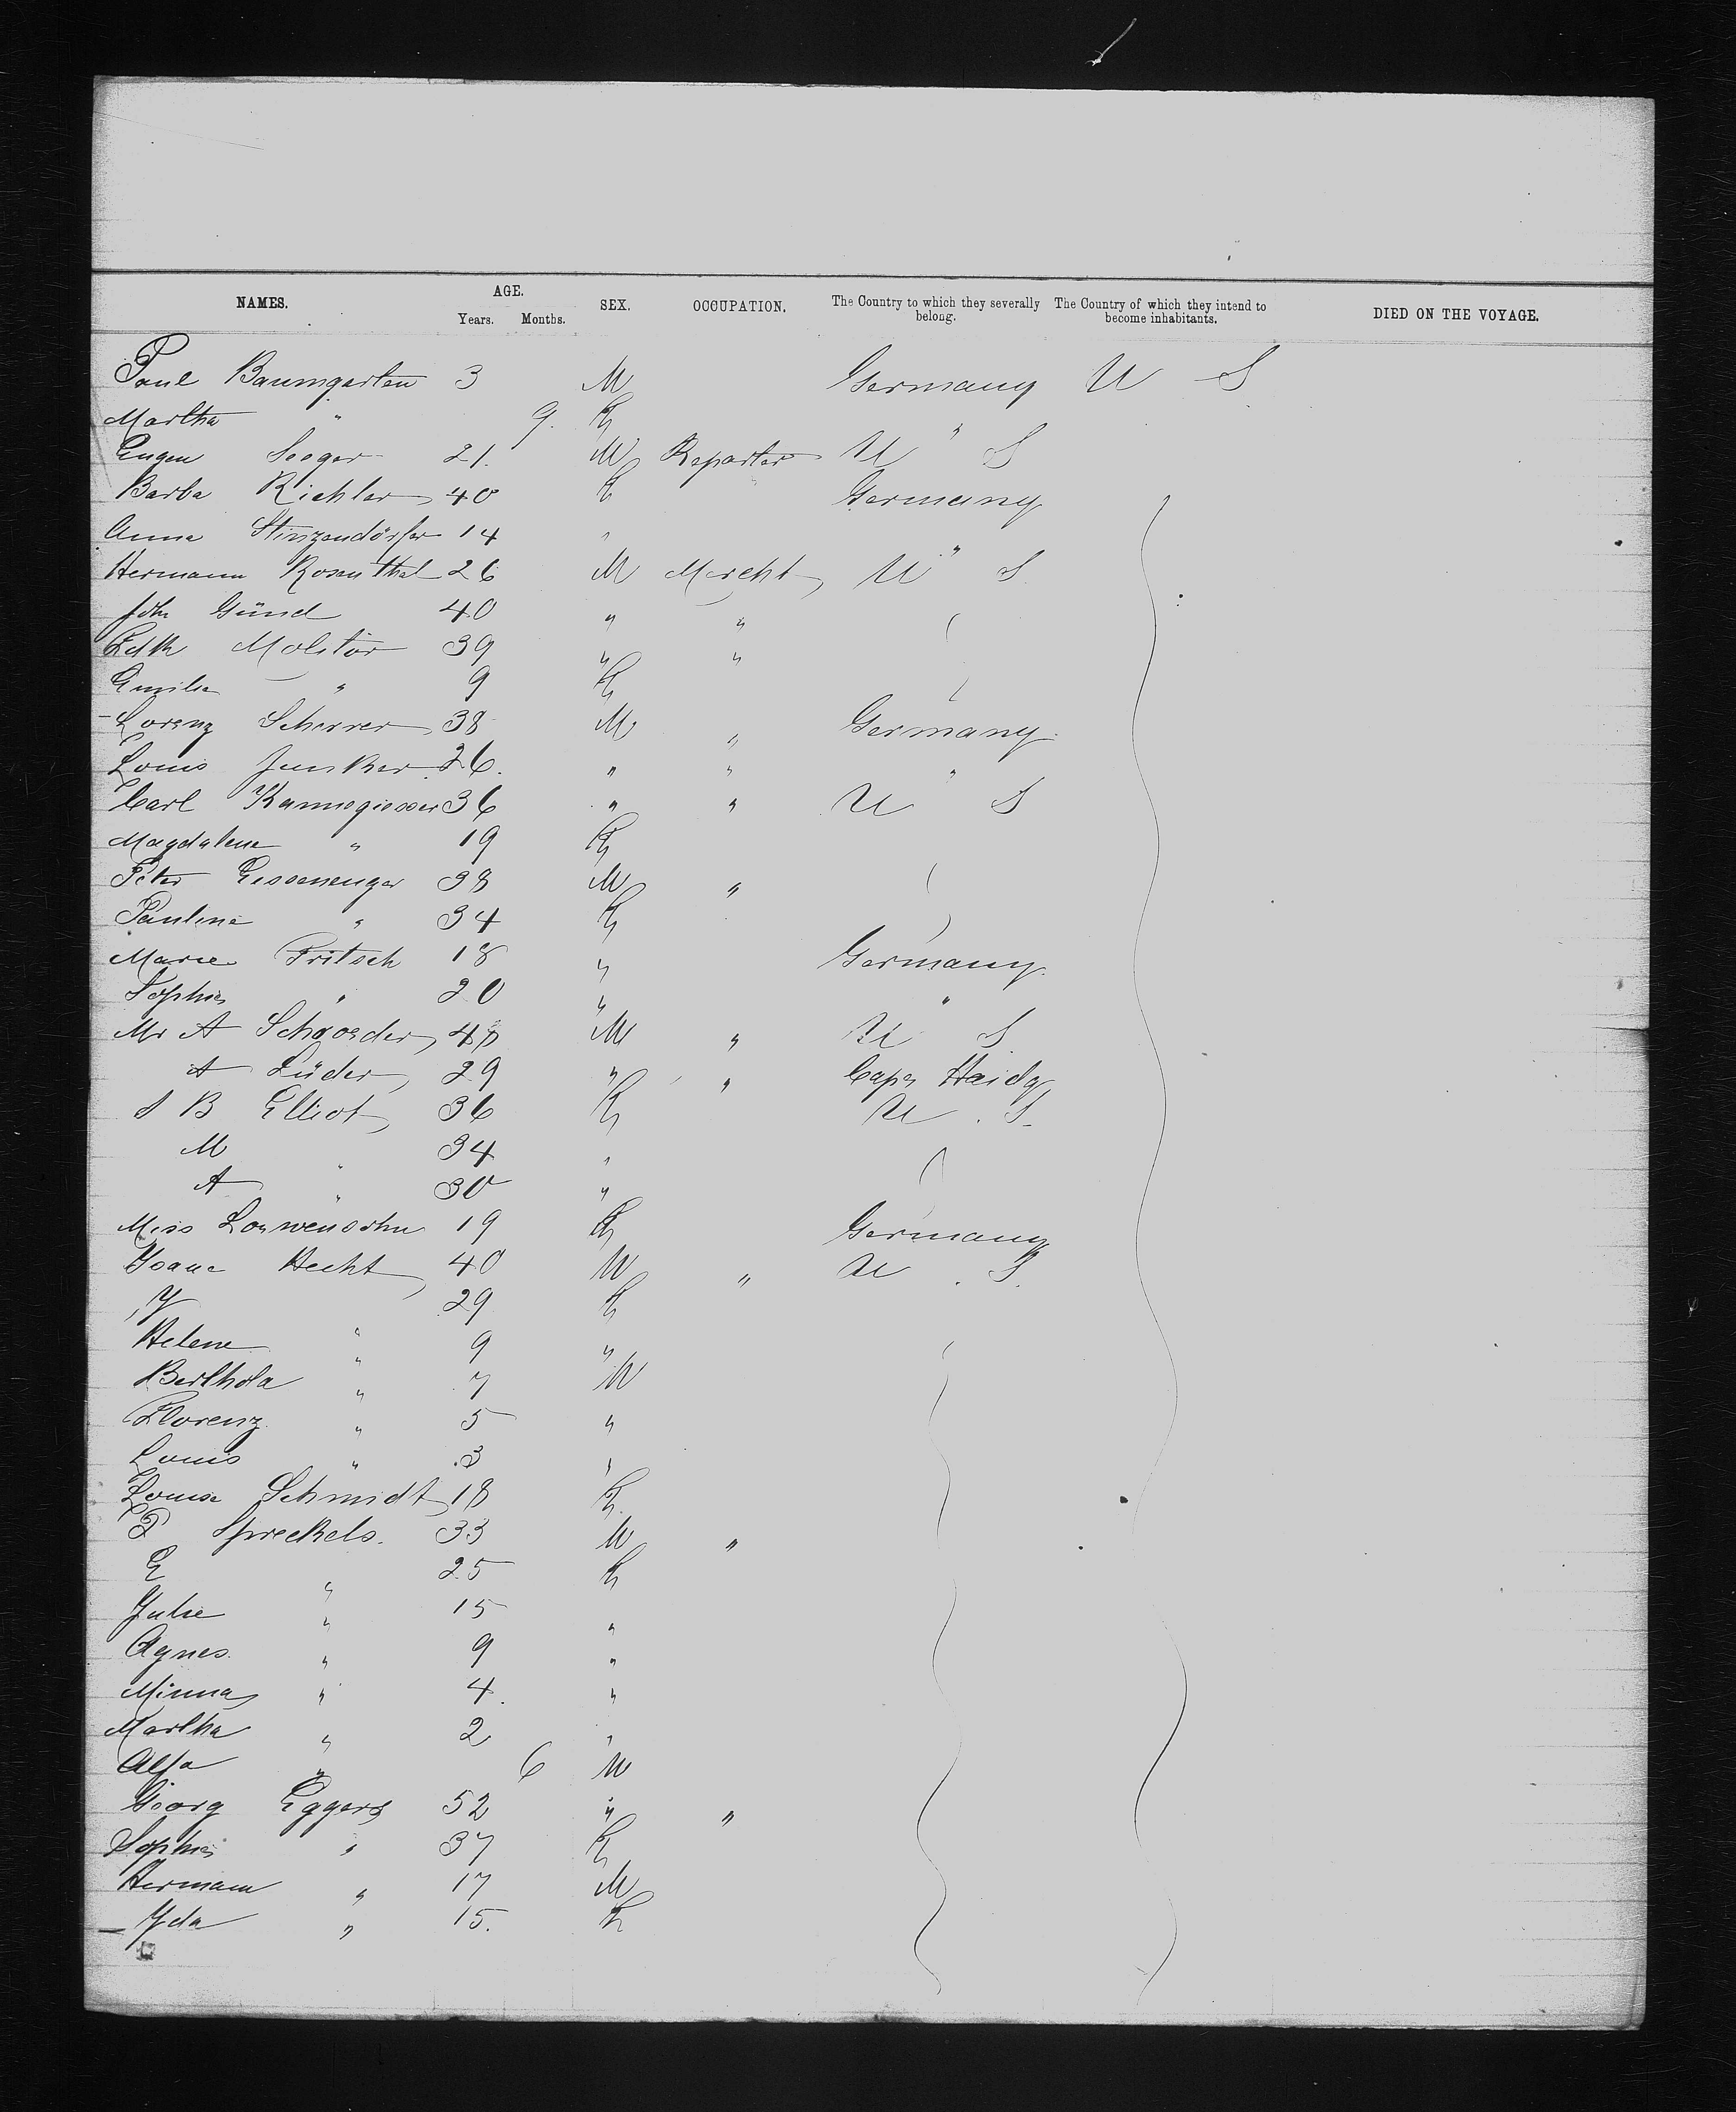 NAMES. AGE. SEX. OCCUPATION. The Country to which they severally belong. The Country of which they intend to become inhabitants. DIED ON THE VOYAGE.
Years. Months.
Paul Baumgarten 3 M Germany U S
Martha " 9. F "
Eugen Seeger 21. M Reporter U S
Barba Richler 40 F Germany
Anna Stinzendörfer 14 " "
Hermann Rosenthal 26 M Mercht U S
Joh Günd 40 " "
Molitor 39 " "
Emilie " 9 F
Lorenz Scherrer 38 M " Germany
Louis Junker 26. " " "
Carl Kannegiesser 36 " " U S
Magdalene " 19 F
Peter Gessenenger 38 M "
Pauline " 34 F
Marie Fritsch 18 " Germany.
Sophie " 20 " "
Mr A Schroeder 48 M " U S
A Lüder 29 " "
S B Elliot 36 F U . S.
M " 34 "
A " 30 "
Miss Loewensohn 19 F Germany
Isaac Hecht 40 M " U . S.
Y " 29 F
Helene " 9 "
Berthola " 7 M
Florenz " 5 "
Louis " 3 "
Louise Schmidt 18 F.
P Spreckels. 33 M "
E " 25 F
Julie " 15 "
Agnes. " 9 "
Minna " 4. "
Martha " 2 "
Alfa " 6 M
Georg Eggers 52 " "
Sophie " 37 F
Hermann " 17 M
Ida " 15. F